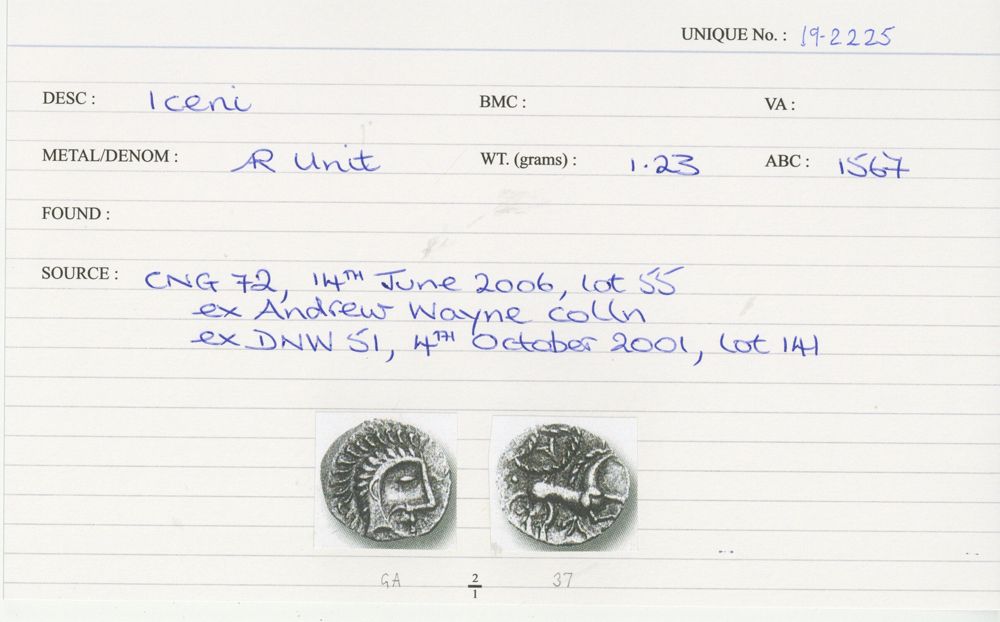 UNIQUE No. : 19-2225
DESC : Iceni BMC : VA :
METAL/DENOM : AR Unit WT. (grams) : 1.23 ABC : 1567
FOUND :
SOURCE : CNG 72, 14TH June 2006, lot 55
ex Andrew Wayne colln
ex DNW 51, 4TH October 2001, lot 141
GA 2/1 37